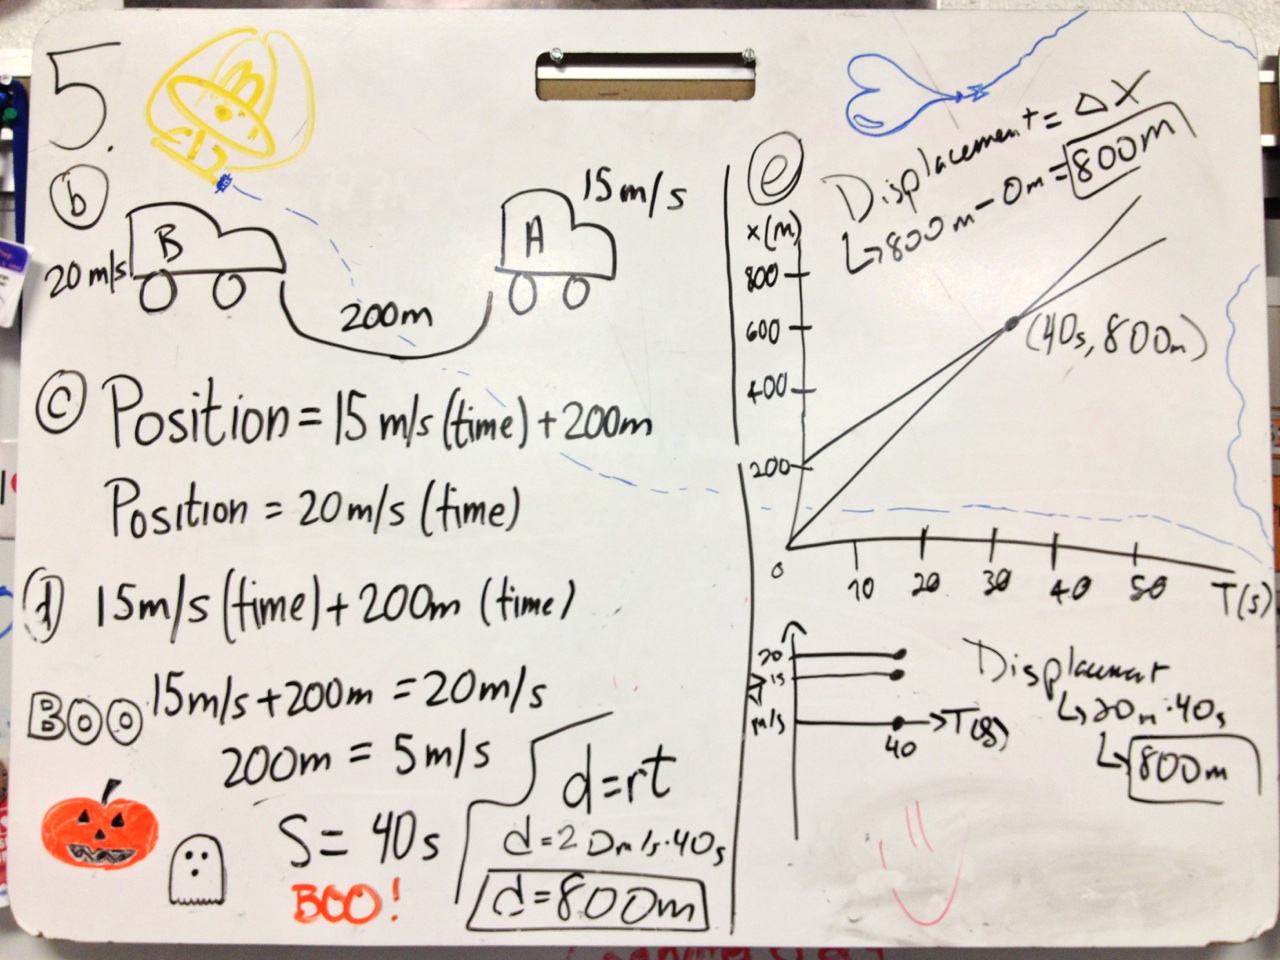 5.
b
B
20 m/s
A
15 m/s
200m
c
Position = 15 m/s (time) + 200m
Position = 20 m/s (time)
d
15 m/s (time) + 200m (time)
BOO
15 m/s + 200m = 20 m/s
200m = 5 m/s
S = 40 s
BOO!
d = rt
d = 20m/s · 40s
d = 800m
e
Displacement = Δ X
↳ 800m - 0m = 800m
x (m)
800
600
400
200
0
10
20
30
40
50
T (s)
(40s, 800m)
20
15
m/s
40
T(s)
Displacement
↳ 20m · 40s
↳ 800m